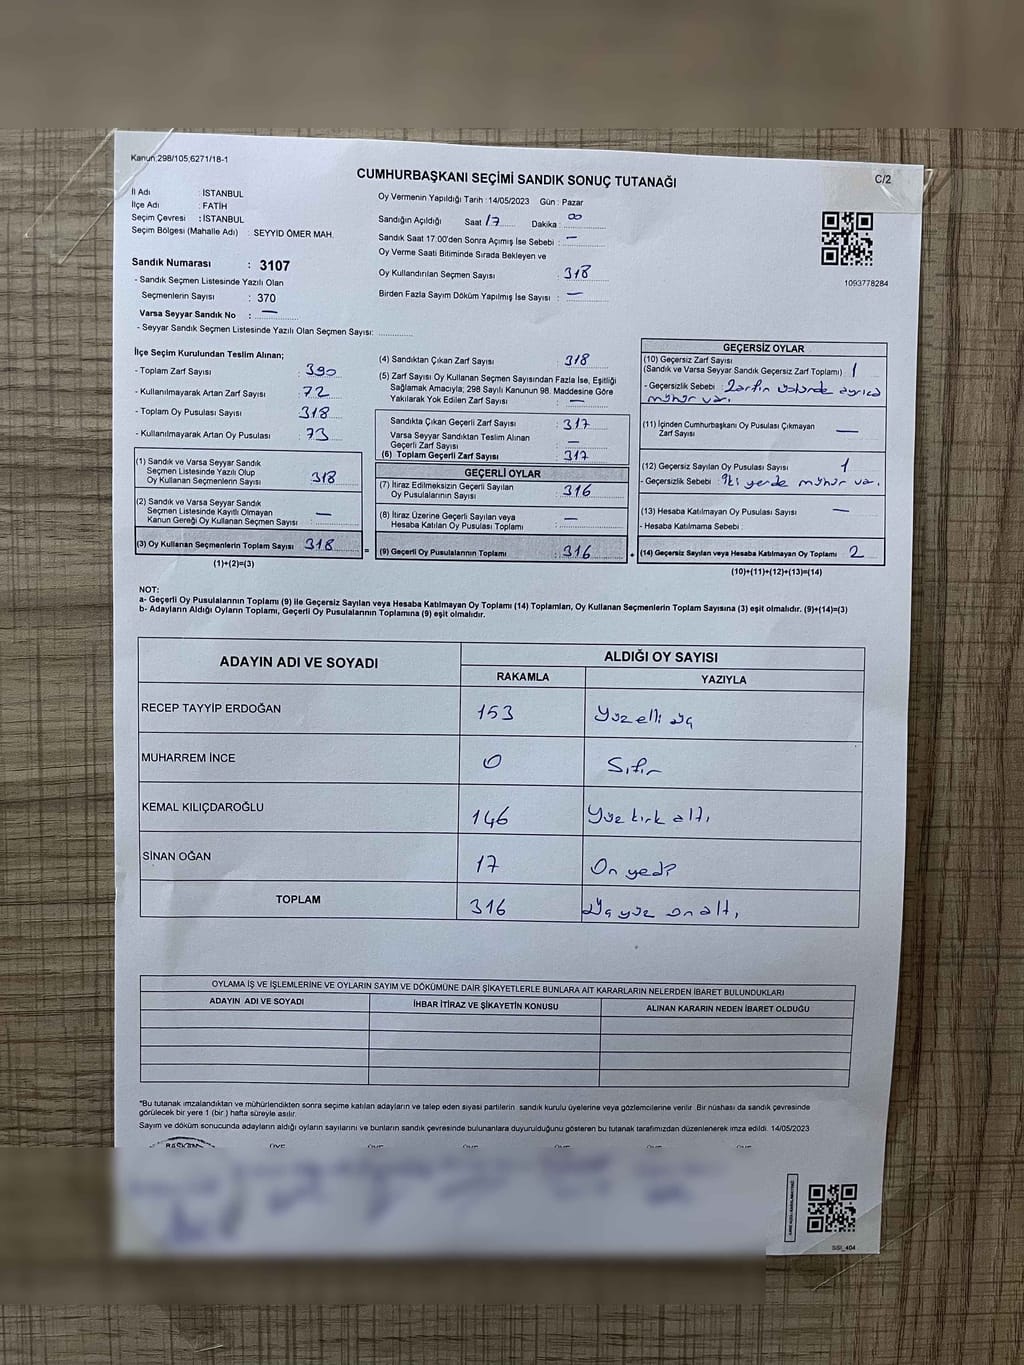 Kanun,298/105;6271/18-1
CUMHURBAŞKANI SEÇİMİ SANDIK SONUÇ TUTANAĞI
C/2
İl Adı : İSTANBUL
İlçe Adı : FATİH
Seçim Çevresi : İSTANBUL
Seçim Bölgesi (Mahalle Adı) : SEYYİD ÖMER MAH.
Oy Vermenin Yapıldığı Tarih : 14/05/2023 Gün : Pazar
Sandığın Açıldığı Saat 17 Dakika : 00
Sandık Saat 17:00'den Sonra Açımış İse Sebebi : —
Oy Verme Saati Bitiminde Sırada Bekleyen ve
Oy Kullandırılan Seçmen Sayısı : 318
Birden Fazla Sayım Döküm Yapılmış İse Sayısı : —
1093778284
Sandık Numarası : 3107
- Sandık Seçmen Listesinde Yazılı Olan
Seçmenlerin Sayısı : 370
Varsa Seyyar Sandık No : —
- Seyyar Sandık Seçmen Listesinde Yazılı Olan Seçmen Sayısı:
İlçe Seçim Kurulundan Teslim Alınan;
- Toplam Zarf Sayısı : 390
- Kullanılmayarak Artan Zarf Sayısı : 72
- Toplam Oy Pusulası Sayısı : 318
- Kullanılmayarak Artan Oy Pusulası : 73
(1) Sandık ve Varsa Seyyar Sandık
Seçmen Listesinde Yazılı Olup
Oy Kullanan Seçmenlerin Sayısı : 318
(2) Sandık ve Varsa Seyyar Sandık
Seçmen Listesinde Kayıtlı Olmayan
Kanun Gereği Oy Kullanan Seçmen Sayısı : —
(3) Oy Kullanan Seçmenlerin Toplam Sayısı : 318
(1)+(2)=(3)
(4) Sandıktan Çıkan Zarf Sayısı : 318
(5) Zarf Sayısı Oy Kullanan Seçmen Sayısından Fazla İse, Eşitliği
Sağlamak Amacıyla; 298 Sayılı Kanunun 98. Maddesine Göre
Yakılarak Yok Edilen Zarf Sayısı : —
Sandıkta Çıkan Geçerli Zarf Sayısı : 317
Varsa Seyyar Sandıktan Teslim Alınan
Geçerli Zarf Sayısı : —
(6) Toplam Geçerli Zarf Sayısı : 317
GEÇERLİ OYLAR
(7) İtiraz Edilmeksizin Geçerli Sayılan
Oy Pusulalarının Sayısı : 316
(8) İtiraz Üzerine Geçerli Sayılan veya
Hesaba Katılan Oy Pusulası Toplamı : —
= (9) Geçerli Oy Pusulalarının Toplamı : 316
GEÇERSİZ OYLAR
(10) Geçersiz Zarf Sayısı
(Sandık ve Varsa Seyyar Sandık Geçersiz Zarf Toplamı) : 1
- Geçersizlik Sebebi : Zarfın üstünde ayrıca
mühür var.
(11) İçinden Cumhurbaşkanı Oy Pusulası Çıkmayan
Zarf Sayısı : —
(12) Geçersiz Sayılan Oy Pusulası Sayısı : 1
- Geçersizlik Sebebi : İki yerde mühür var.
(13) Hesaba Katılmayan Oy Pusulası Sayısı : —
- Hesaba Katılmama Sebebi :
+ (14) Geçersiz Sayılan veya Hesaba Katılmayan Oy Toplamı : 2
(10)+(11)+(12)+(13)=(14)
NOT:
a- Geçerli Oy Pusulalarının Toplamı (9) ile Geçersiz Sayılan veya Hesaba Katılmayan Oy Toplamı (14) Toplamları, Oy Kullanan Seçmenlerin Toplam Sayısına (3) eşit olmalıdır. (9)+(14)=(3)
b- Adayların Aldığı Oyların Toplamı, Geçerli Oy Pusulalarının Toplamına (9) eşit olmalıdır.
ADAYIN ADI VE SOYADI
ALDIĞI OY SAYISI
RAKAMLA YAZIYLA
RECEP TAYYİP ERDOĞAN 153 Yüz elli üç
MUHARREM İNCE 0 Sıfır
KEMAL KILIÇDAROĞLU 146 Yüz kırk altı
SİNAN OĞAN 17 On yedi
TOPLAM 316 Üç yüz on altı
OYLAMA İŞ VE İŞLEMLERİNE VE OYLARIN SAYIM VE DÖKÜMÜNE DAİR ŞİKAYETLERLE BUNLARA AİT KARARLARIN NELERDEN İBARET BULUNDUKLARI
ADAYIN ADI VE SOYADI İHBAR İTİRAZ VE ŞİKAYETİN KONUSU ALINAN KARARIN NEDEN İBARET OLDUĞU
*Bu tutanak imzalandıktan ve mühürlendikten sonra seçime katılan adayların ve talep eden siyasi partilerin sandık kurulu üyelerine veya gözlemcilerine verilir. Bir nüshası da sandık çevresinde
görülecek bir yere 1 (bir) hafta süreyle asılır.
Sayım ve döküm sonucunda adayların aldığı oyların sayılarını ve bunların sandık çevresinde bulunanlara duyurulduğunu gösteren bu tutanak tarafımızdan düzenlenerek imza edildi. 14/05/2023
BAŞKAN ÜYE ÜYE ÜYE ÜYE ÜYE ÜYE
SSI_404